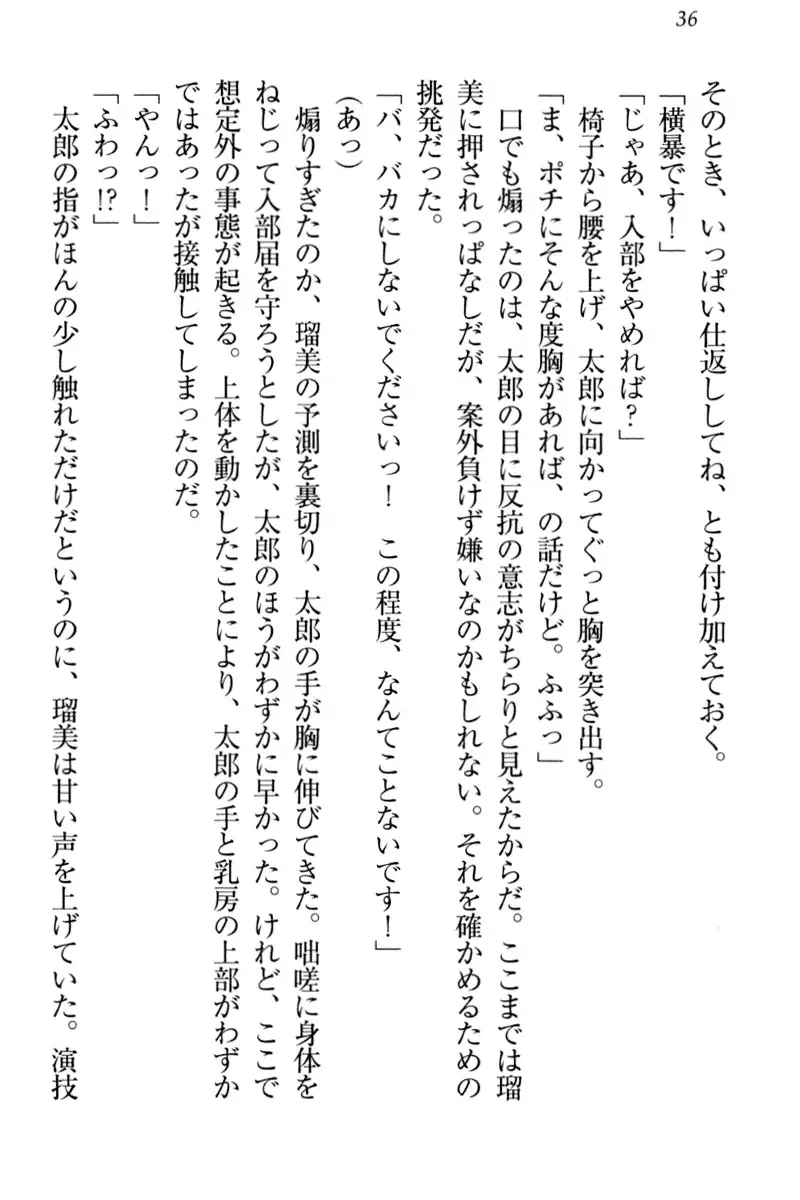 36
そのとき、いっぱい仕返ししてね、とも付け加えておく。
「横暴です！」
「じゃあ、入部をやめれば？」
椅子から腰を上げ、太郎に向かってぐっと胸を突き出す。
「ま、ポチにそんな度胸があれば、の話だけど。ふふっ」
口でも煽ったのは、太郎の目に反抗の意志がちらりと見えたからだ。ここまでは瑠
美に押されっぱなしだが、案外負けず嫌いなのかもしれない。それを確かめるための
挑発だった。
「バ、バカにしないでくださいっ！　この程度、なんてことないです！」
(あっ)
煽りすぎたのか、瑠美の予測を裏切り、太郎の手が胸に伸びてきた。咄嗟に身体を
ねじって入部届を守ろうとしたが、太郎のほうがわずかに早かった。けれど、ここで
想定外の事態が起きる。上体を動かしたことにより、太郎の手と乳房の上部がわずか
ではあったが接触してしまったのだ。
「やんっ！」
「ふわっ!?」
太郎の指がほんの少し触れただけだというのに、瑠美は甘い声を上げていた。演技